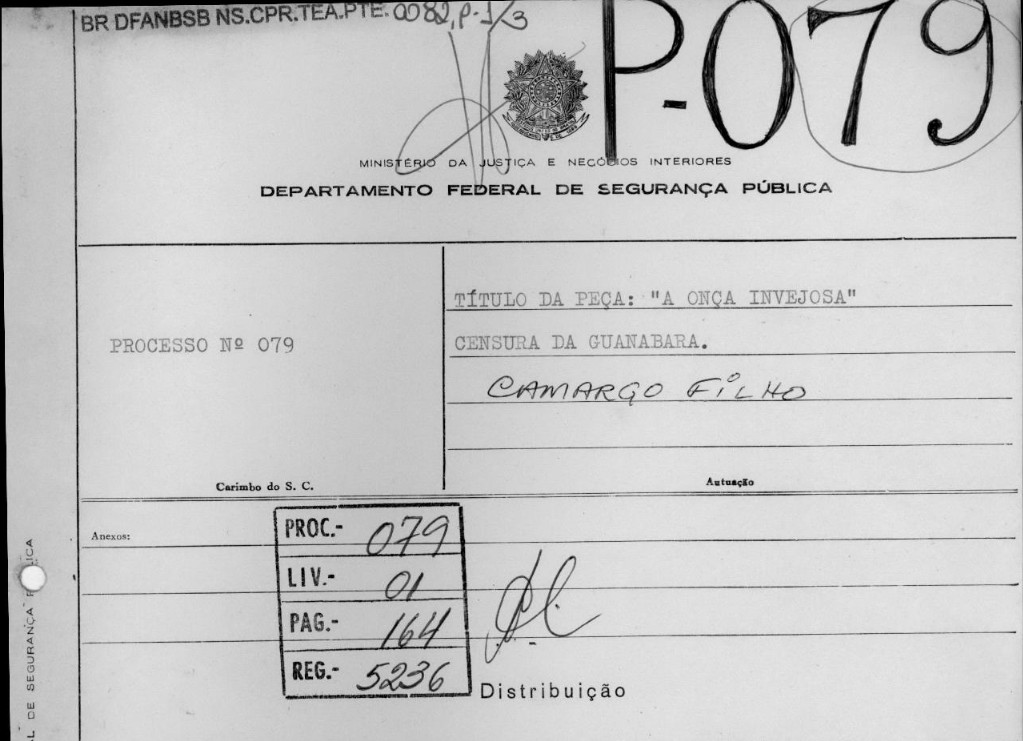 BR DFANBSB NS.CPR.TEA.PTE. 0082, P-1/3
P-079
MINISTÉRIO DA JUSTIÇA E NEGÓCIOS INTERIORES
DEPARTAMENTO FEDERAL DE SEGURANÇA PÚBLICA
PROCESSO Nº 079
Carimbo do S. C.
TÍTULO DA PEÇA: "A ONÇA INVEJOSA"
CENSURA DA GUANABARA.
CAMARGO FILHO
Autuação
Anexos:
PROC.- 079
LIV.- 01
PAG.- 164
REG.- 5236
Distribuição
DE SEGURANÇA